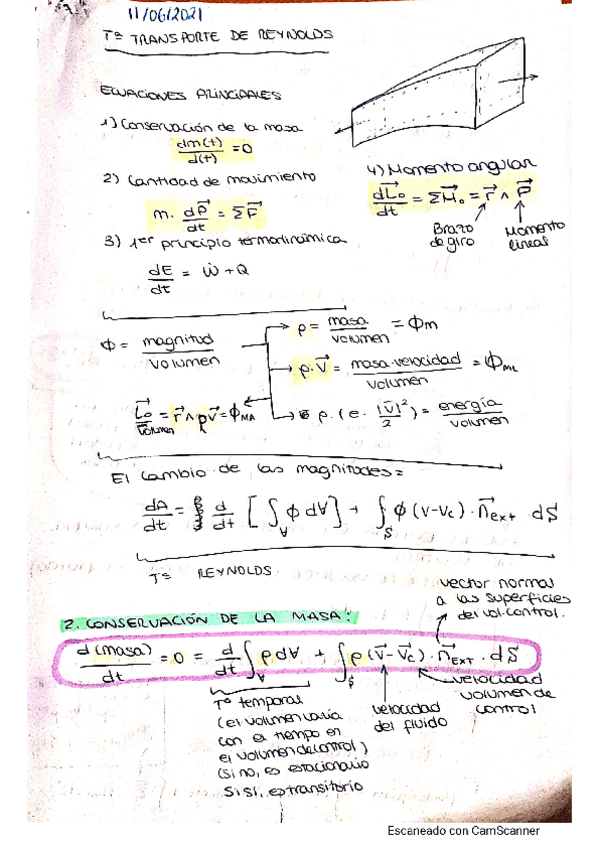 11/06/2021
Tª TRANSPORTE DE REYNOLDS
ECUACIONES PRINCIPALES
1) Conservación de la masa
dm(t)/d(t) = 0
2) Cantidad de movimiento
m. dP⃗/dt = ΣF⃗
3) 1er principio termodinámica
dE/dt = Ẇ + Q
4) Momento angular
dL⃗o/dt = ΣM⃗o = r⃗ ∧ P⃗
Brazo de giro
Momento lineal
Φ = magnitud/volumen
ρ = masa/volumen = Φm
ρ.V⃗ = masa.velocidad/volumen = Φ
L⃗o/volumen = r⃗ ∧ ρv⃗ = ΦMA
ρ. (e. |v⃗|²/2) = energía/volumen
El cambio de las magnitudes =
dA/dt = d/dt [∫∀ Φ d∀] + ∫$ Φ (v-vc) · n⃗ext · d$
Tª REYNOLDS
vector normal
a las superficies
del vol. control.
2. CONSERVACIÓN DE LA MASA:
d(masa)/dt = 0 = d/dt ∫∀ ρ d∀ + ∫$ ρ (v⃗ - v⃗c) · n⃗Ext · d$
Tº temporal
(el volumen varía
con el tiempo en
el volumen de control)
(si no, es estacionario
Si sí, es transitorio
velocidad
del fluido
velocidad
volumen de
control
Escaneado con CamScanner